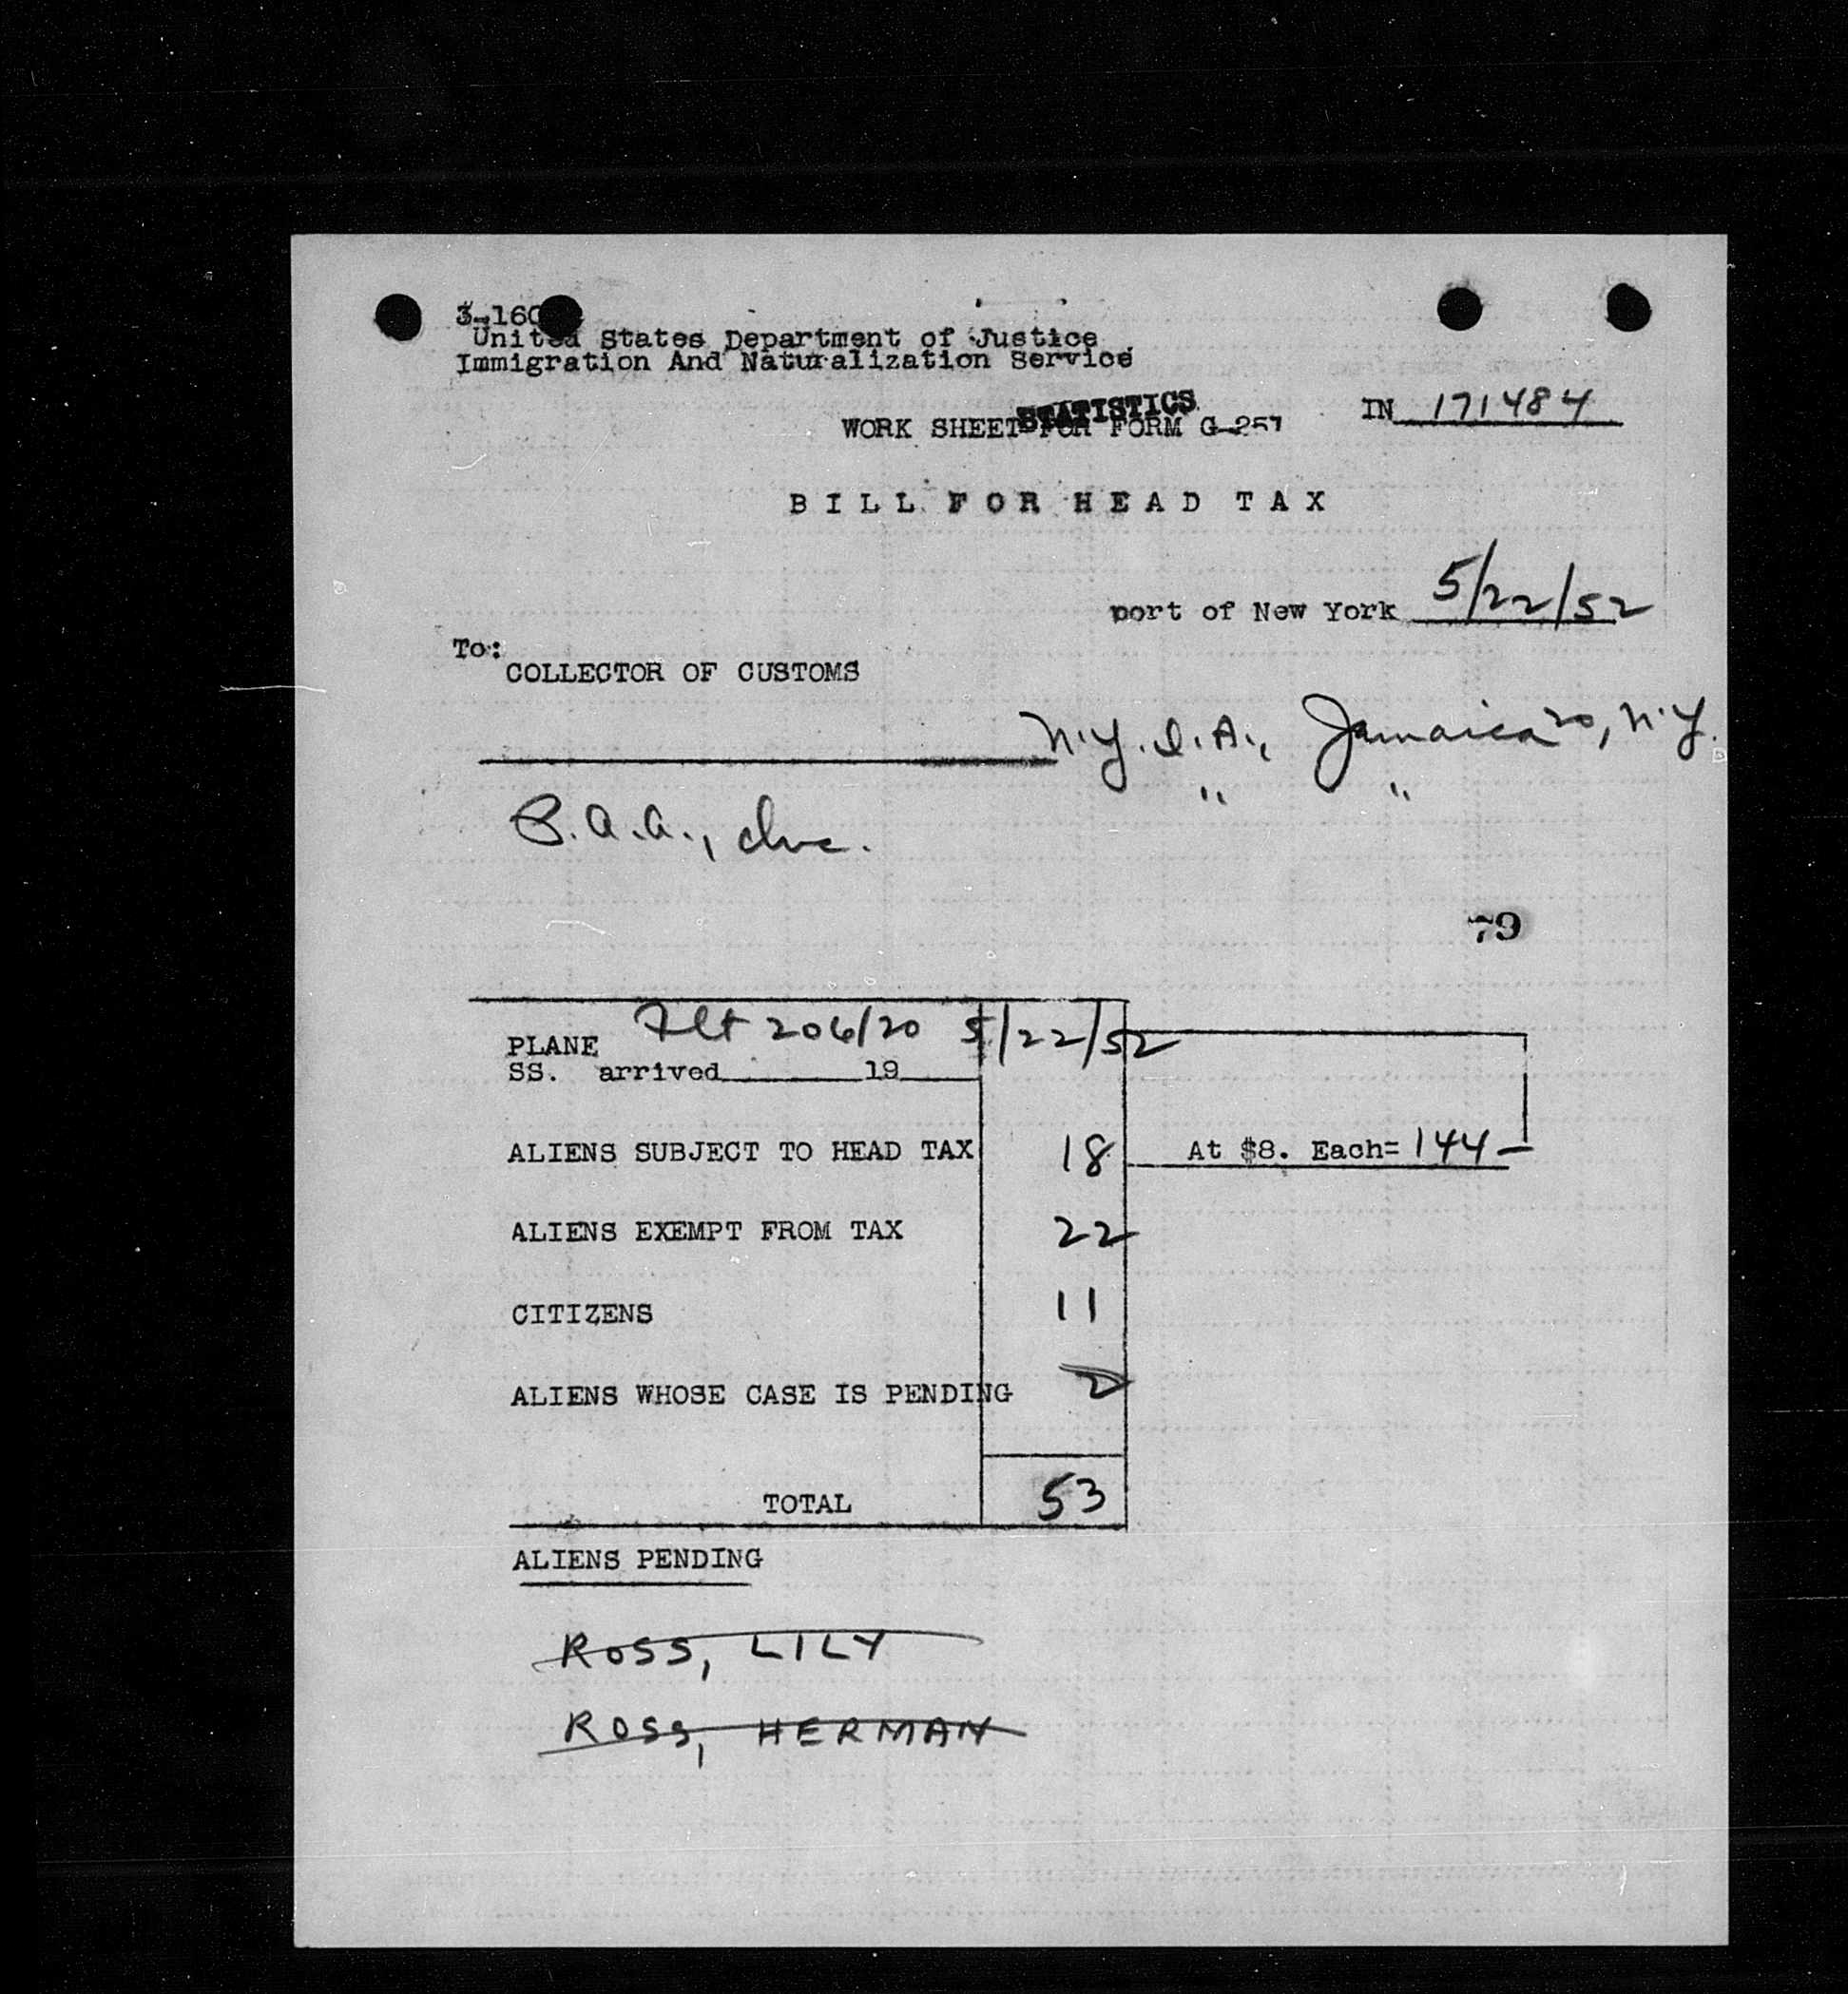 3-160
United States Department of Justice
Immigration And Naturalization Service
STATISTICS
WORK SHEET FOR FORM G-257
IN 171484
BILL FOR HEAD TAX
port of New York 5/22/52
To:
COLLECTOR OF CUSTOMS
N.Y.I.A., Jamaica 20, N.Y.
" "
P.A.A., Inc.
79
PLANE Flt 206/20 5/22/52
SS. arrived 19
ALIENS SUBJECT TO HEAD TAX 18 At $8. Each= 144—
ALIENS EXEMPT FROM TAX 22
CITIZENS 11
ALIENS WHOSE CASE IS PENDING 2
TOTAL 53
ALIENS PENDING
ROSS, LILY
ROSS, HERMAN